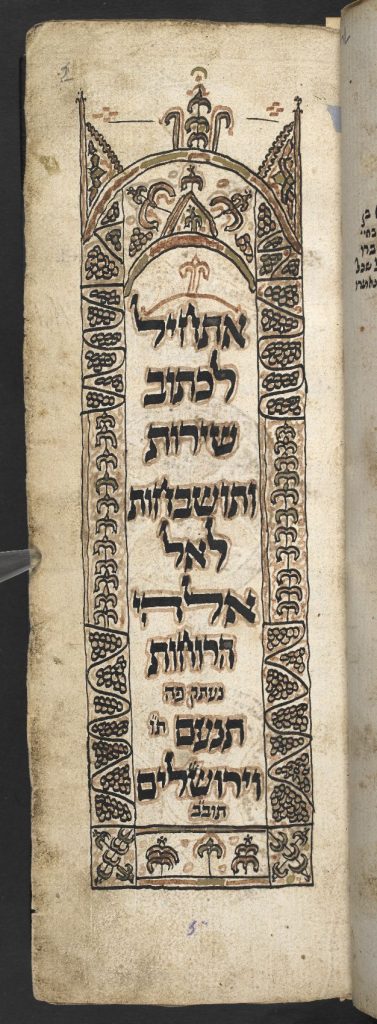 2
אתחיל
לכתוב
שירות
ותושבחות
לאל
אלהי
הרוחות
נעתק פה
תנעם ת״ו
וירושלים
תובב
5